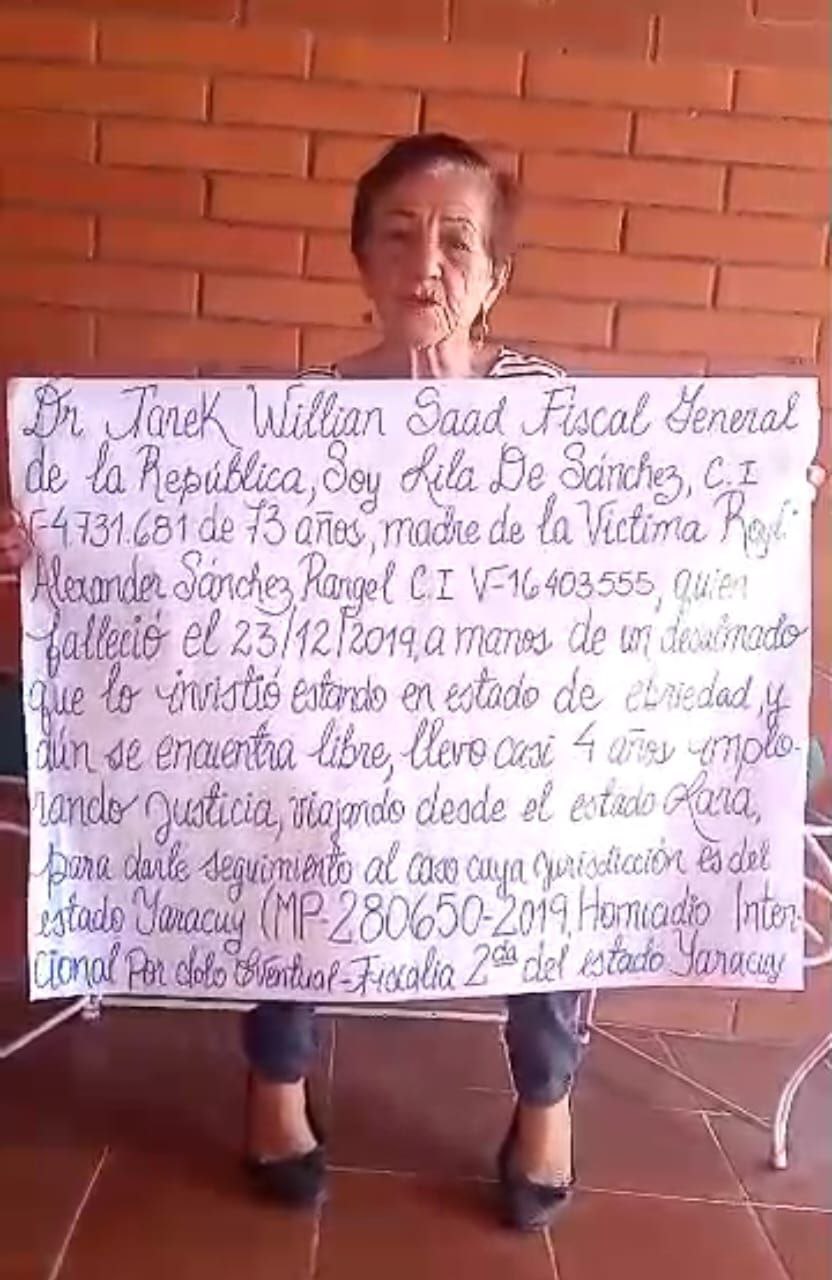 Dr. Tarek Willian Saad Fiscal General
de la República, Soy Lila De Sánchez, C.I
V-4.731.681 de 73 años, madre de la Victima
Alexander Sánchez Rangel C.I V-16403555, quien
falleció el 23/12/2019, a manos de un desalmado
que lo invistió estando en estado de ebriedad, y
aún se encuentra libre, llevo casi 4 años implo-
rando Justicia, viajando desde el estado Lara,
para darle seguimiento al caso cuya jurisdicción es del
estado Yaracuy (MP-280650-2019, Homicidio Inten-
cional Por dolo Eventual-Fiscalia 2da del estado Yaracuy